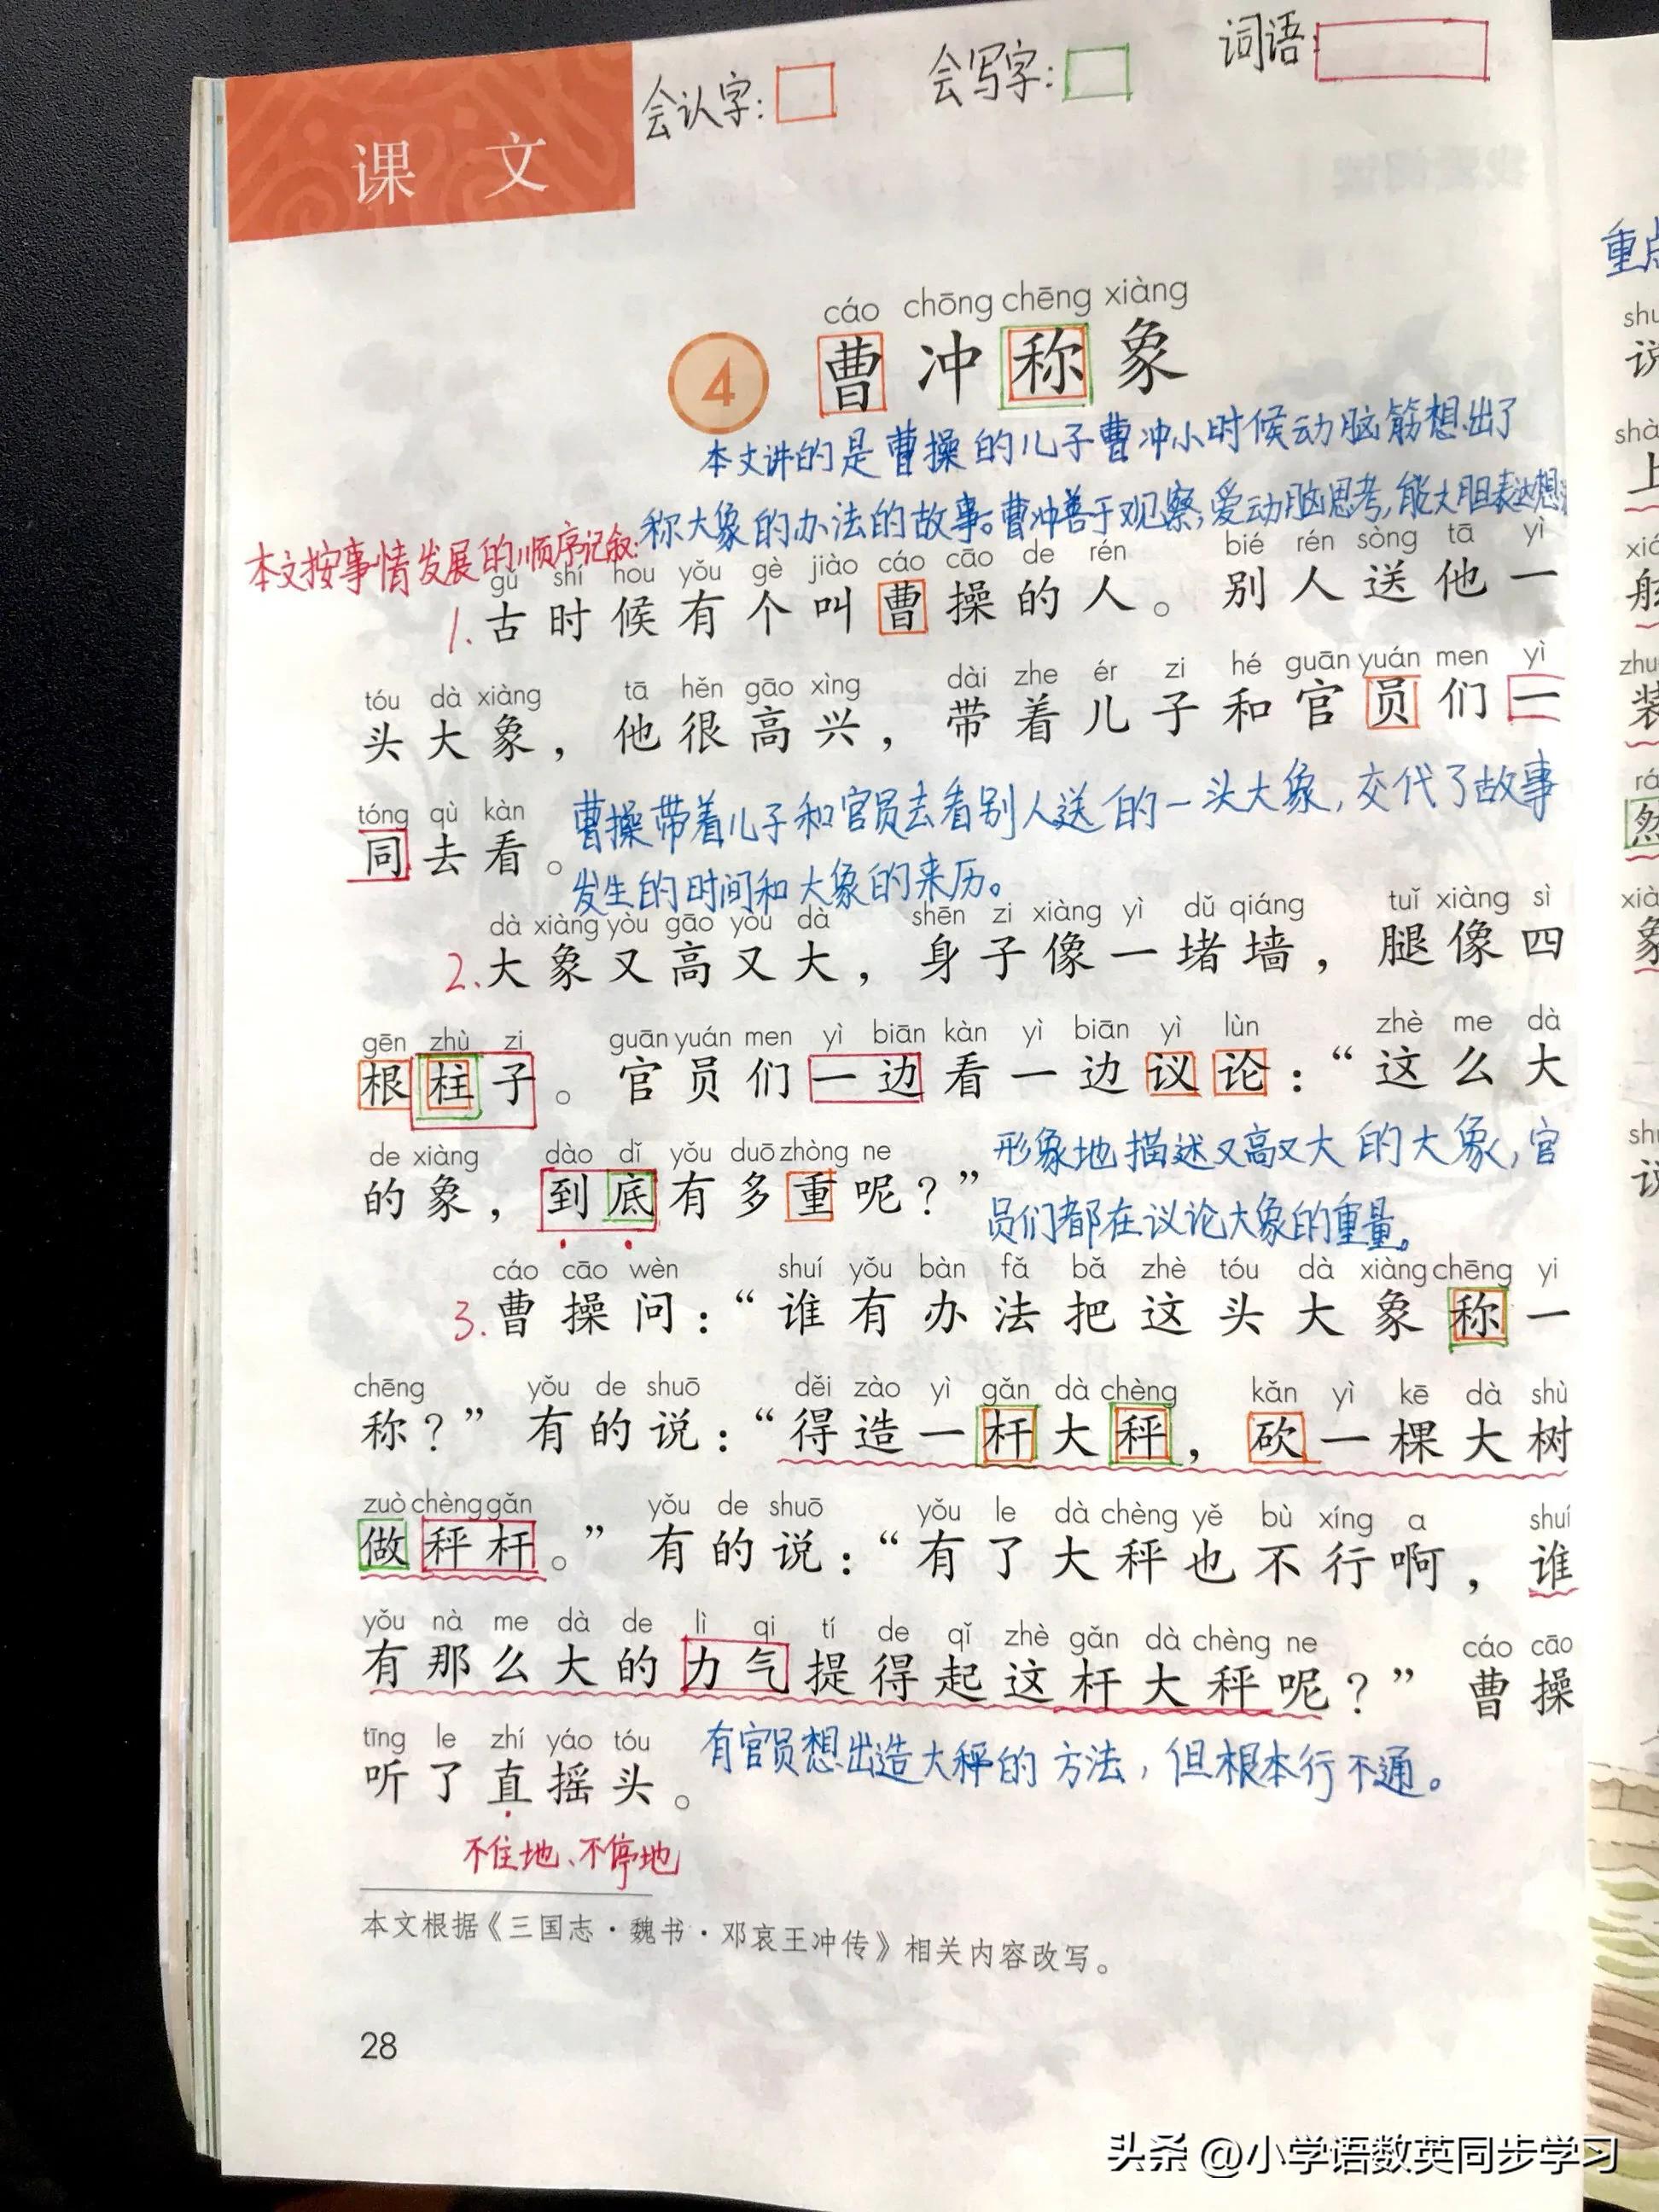 会认字:
会写字:
词语:
课 文
cáo chōng chēng xiàng
4 曹冲称象
本文讲的是曹操的儿子曹冲小时候动脑筋想出了
称大象的办法的故事。曹冲善于观察,爱动脑思考,能大胆表达想
本文按事情发展的顺序记叙:
gǔ shí hou yǒu gè jiào cáo cāo de rén bié rén sòng tā yì
1.古时候有个叫曹操的人。别人送他一
tóu dà xiàng tā hěn gāo xìng dài zhe ér zi hé guān yuán men yì
头大象，他很高兴，带着儿子和官员们一
tóng qù kàn
同去看。
曹操带着儿子和官员去看别人送的一头大象,交代了故事
发生的时间和大象的来历。
dà xiàng yòu gāo yòu dà shēn zi xiàng yì dǔ qiáng tuǐ xiàng sì
2.大象又高又大，身子像一堵墙，腿像四
gēn zhù zi guān yuán men yì biān kàn yì biān yì lùn zhè me dà
根柱子。官员们一边看一边议论：“这么大
de xiàng dào dǐ yǒu duō zhòng ne
的象，到底有多重呢？”
形象地描述又高又大的大象,官
员们都在议论大象的重量。
cáo cāo wèn shuí yǒu bàn fǎ bǎ zhè tóu dà xiàng chēng yi
3.曹操问：“谁有办法把这头大象称一
chēng yǒu de shuō děi zào yì gǎn dà chèng kǎn yì kē dà shù
称？”有的说：“得造一杆大秤，砍一棵大树
zuò chèng gǎn yǒu de shuō yǒu le dà chèng yě bù xíng a shuí
做秤杆。”有的说：“有了大秤也不行啊，谁
yǒu nà me dà de lì qi tí de qǐ zhè gǎn dà chèng ne cáo cāo
有那么大的力气提得起这杆大秤呢？”曹操
tīng le zhí yáo tóu
听了直摇头。
有官员想出造大秤的方法,但根本行不通。
不住地、不停地
本文根据《三国志·魏书·邓哀王冲传》相关内容改写。
28
重点
shu
说
shà
上
xiá
zhu
装
rá
然
xià
象
shu
说
头条 @小学语数英同步学习